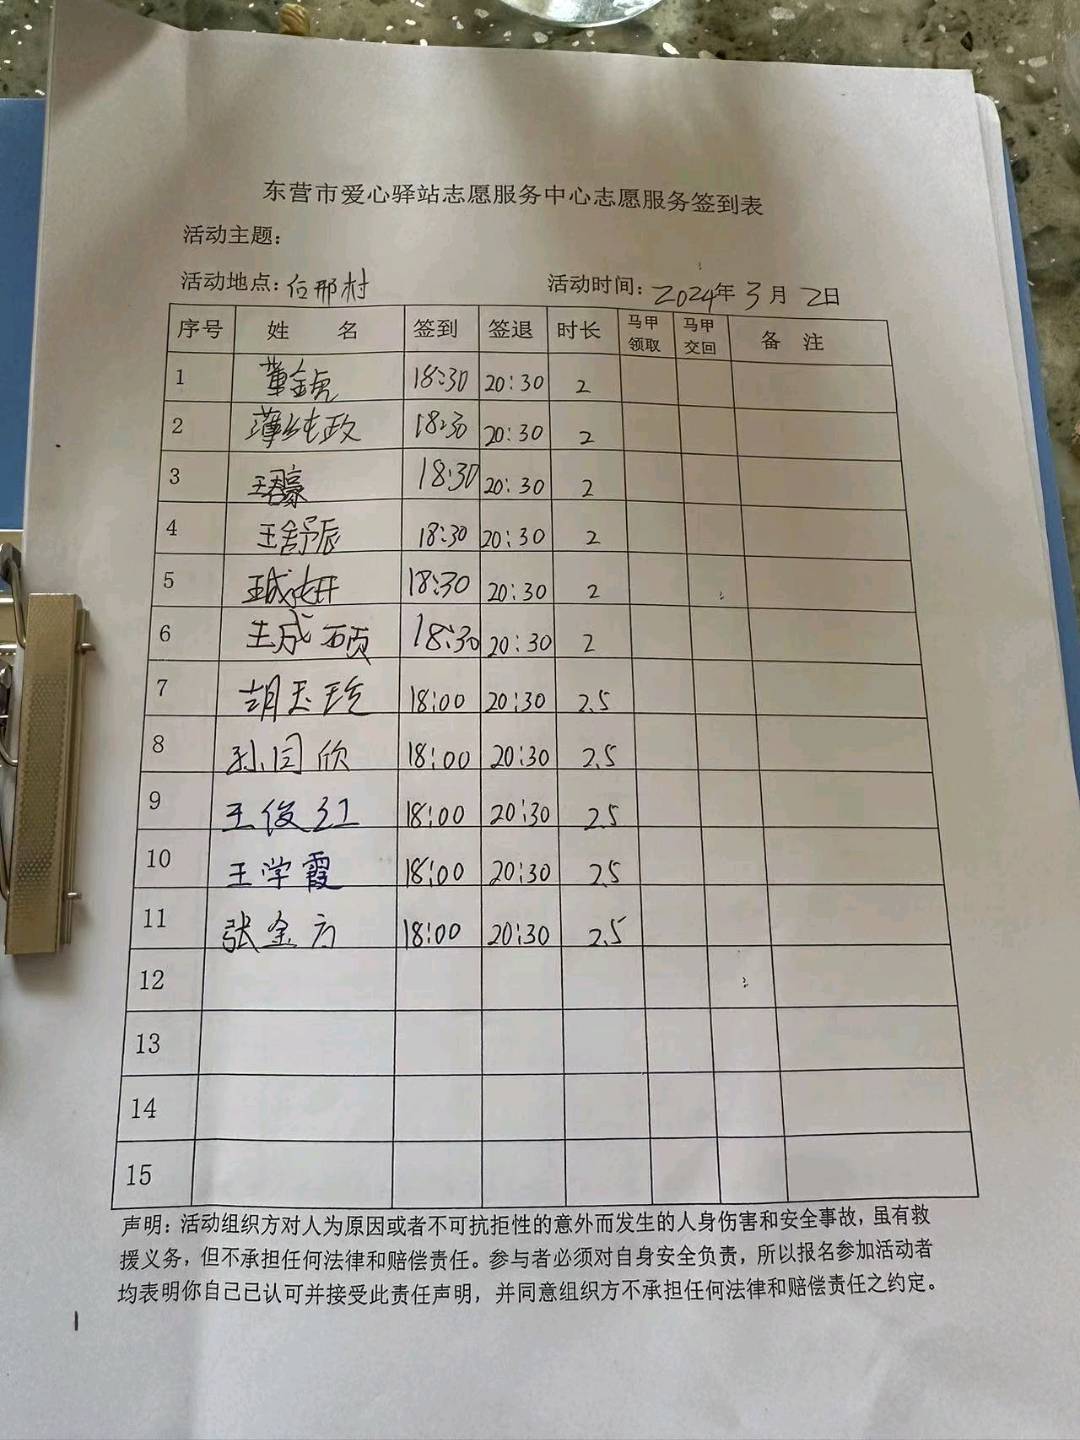 东营市爱心驿站志愿服务中心志愿服务签到表
活动主题：
活动地点：后邢村 活动时间：2024年3月2日
序号 姓 名 签到 签退 时长 马甲领取 马甲交回 备 注
1 董金虎 18:30 20:30 2
2 薄纯政 18:30 20:30 2
3 王君豪 18:30 20:30 2
4 王舒辰 18:30 20:30 2
5 18:30 20:30 2
6 王成硕 18:30 20:30 2
7 胡玉珍 18:00 20:30 2.5
8 孙同欣 18:00 20:30 2.5
9 王俊江 18:00 20:30 2.5
10 王学霞 18:00 20:30 2.5
11 张金方 18:00 20:30 2.5
12
13
14
15
声明：活动组织方对人为原因或者不可抗拒性的意外而发生的人身伤害和安全事故，虽有救
援义务，但不承担任何法律和赔偿责任。参与者必须对自身安全负责，所以报名参加活动者
均表明你自己已认可并接受此责任声明，并同意组织方不承担任何法律和赔偿责任之约定。